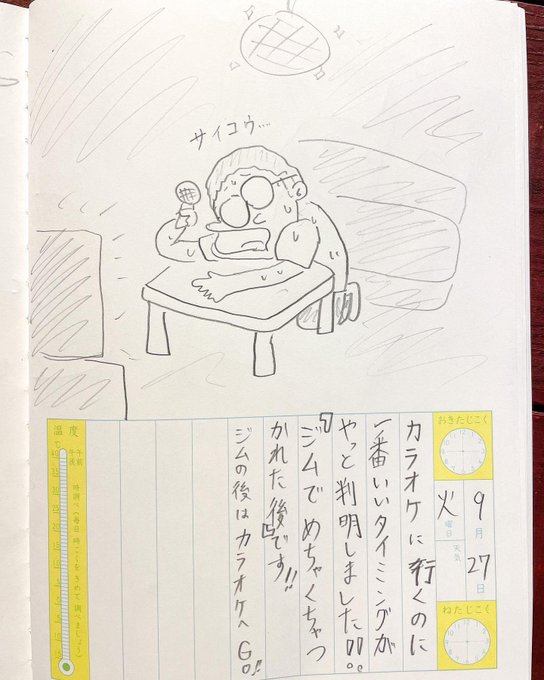 サイコウ…
おきたじこく
9月27日
火曜日
天気
ねたじこく
カラオケに行くのに
一番いいタイミングが
やっと判明しました!!。
『ジムでめちゃくちゃつ
かれた後』です!!
ジムの後はカラオケへGO!!
温度
℃
午前
午後
時調べ(毎日 時こくをきめて調べましょう)